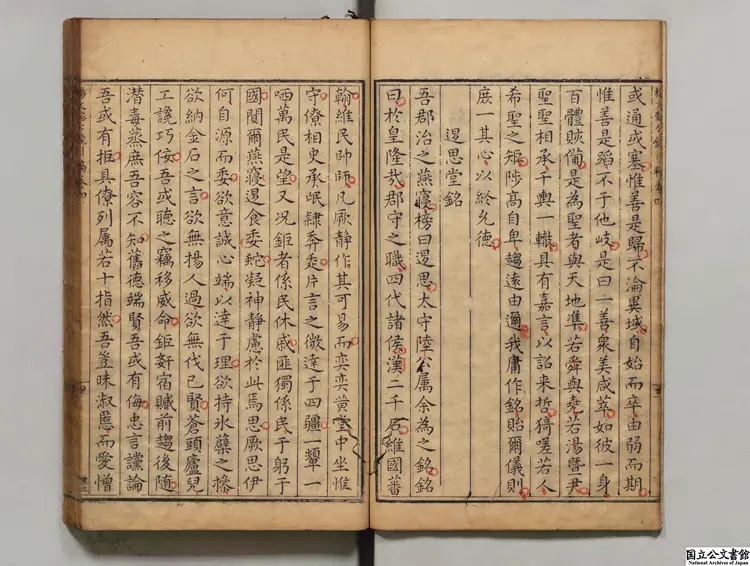 或通或塞惟善是歸不淪異域自始而卒由弱而期
惟善是蹈不于他岐是曰一善衆美咸萃如彼一身
百體賅備是為聖者與天地準若舜與堯若湯暨尹
聖聖相承千輿一轍具有嘉言以詔来哲猗嗟若人
希聖之矩陟髙自卑趨遠由邇我庸作銘貽爾儀則
庶一其心以終允德
遐思堂銘
吾郡治之燕寢榜曰遐思太守陸公属余為之銘銘
曰於皇隆㢤郡守之職四代諸侯漢二千石維國蕃
翰維民帥師凡厥静作其可易而奕奕黄堂中坐惟
守僚相史承岷隷奔片言之微達于四疆一顰一
哂萬民是望又况鉅者係民休戚匪獨係民于躬于
國閒爾燕寢退食委蛇凝神静慮於此焉思厥思伊
何自源而委欲意誠心端以達于理欲持氷蘖之操
欲納金石之言欲無揚人過欲無伐已賢蒼頭廬兒
工讒巧佞吾或聽之竊移威命鉅姦宿贓前趨後随
潜毒蒸庶吾容不知舊德端賢吾或有侮忠言讜論
吾或有拒具僚列属若十指然吾豈昧淑慝而愛憎
国立公文書館
National Archives of Japan